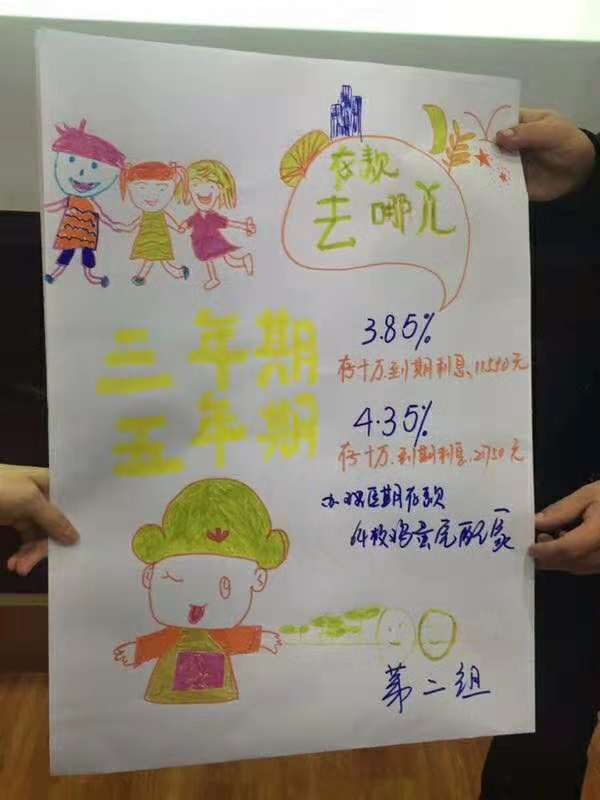 存款
去哪儿
三年期
3.85%
存十万.到期利息.11550元
五年期
4.35%
存十万.到期利息.21750元
办理定期存款
第二组